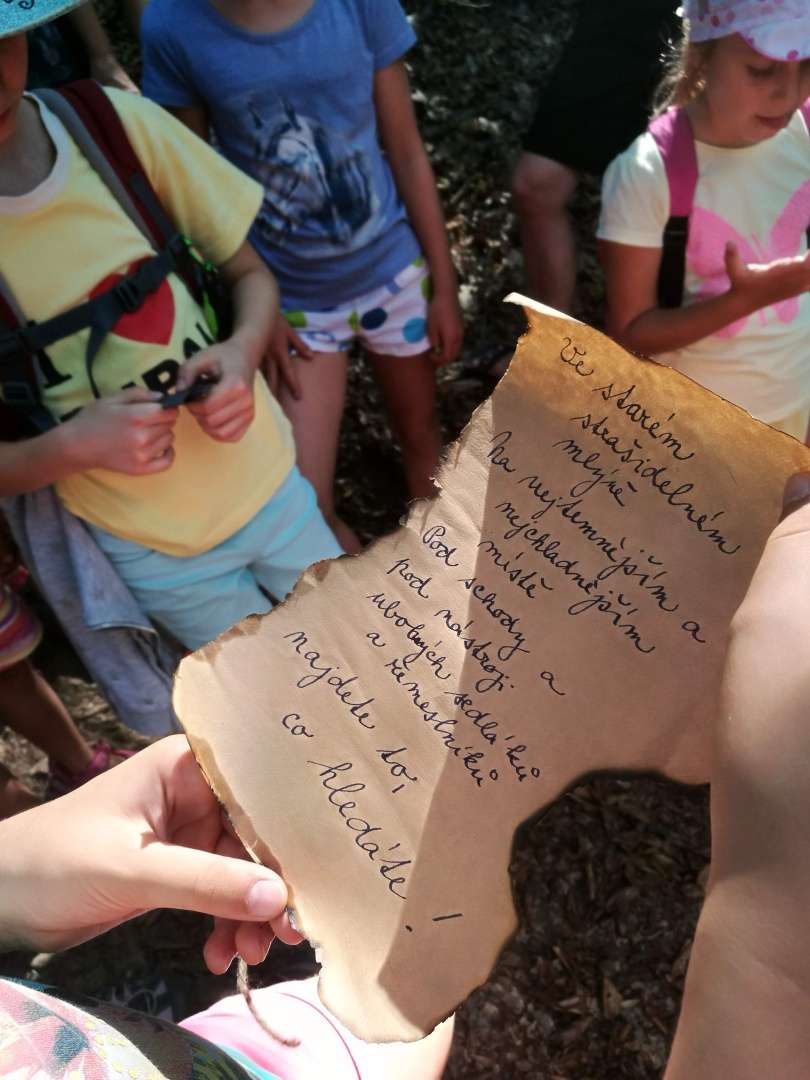 Ve starém
strašidelném
mlýně
na nejtemnějším a
nejchladnějším
místě
Pod schody a
pod nástroji
ubohých sedláků
a řemeslníků
najdete to,
co hledáte!
I